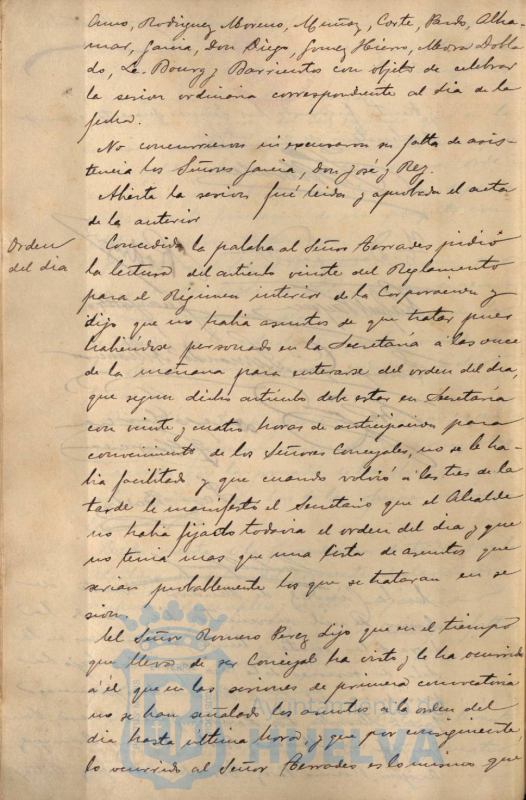 Rodriguez Moreno, Muñoz, Corte, Pardo, Alha-
mar, Garcia, Don Diego, Gomez Hierro, Mora Dobla
do, Le-Bourg y Barrientos con objeto de celebrar
la sesion ordinaria correspondiente al dia de la
fecha.
No concurrieron ni excusaron su falta de asis-
tencia los Señores Garcia, Don José y Rey.
Abierta la sesion fué leida y aprobada el acta
de la anterior
Orden
del dia
Concedida la palabra al Señor Terrades pidió
la lectura del articulo veinte del Reglamento
para el Régimen interior de la Corporacion y
dijo que no habia asuntos de que tratar pues
habiendose personado en la Secretaría a las once
de la mañana para enterarse del orden del dia,
que segun dicho articulo debe estar en Secretaría
con veinte y cuatro horas de anticipacion para
conocimiento de los Señores Concejales, no se le ha-
bia facilitado y que cuando volvió á las tres de la
tarde le manifestó el Secretario que el Alcalde
no habia fijado todavia el orden del dia y que
no tenia mas que una lista de asuntos que
serian probablemente los que se trataran en se
sion.
El Señor Romero Perez dijo que en el tiempo
que lleva de ser Concejal ha visto y le ha ocurrido
á él que en las sesiones de primera convocatoria
no se han señalado los asuntos á la orden del
dia hasta última hora, y que por consiguiente,
lo ocurrido al Señor Terrades es lo mismo que
Ayuntamiento de
HUELVA